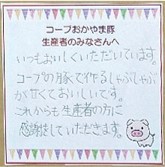 コープおかやま豚
生産者のみなさんへ
いつもおいしくいただいています。
コープの豚で作るしゃぶしゃぶ
がくせくておいしいです。
これからも生産者の方に
感謝をしていただきます。